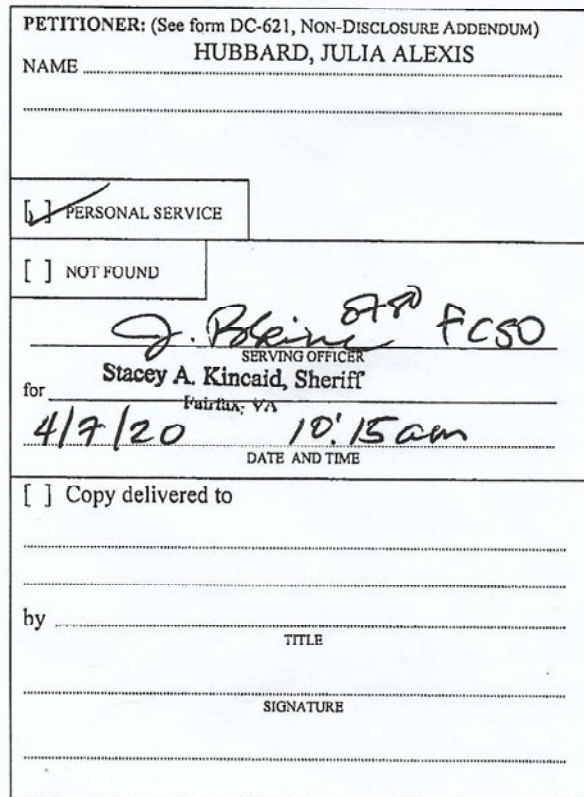 PETITIONER: (See form DC-621, NON-DISCLOSURE ADDENDUM)
HUBBARD, JULIA ALEXIS
NAME
[✓] PERSONAL SERVICE
[ ] NOT FOUND
J. FCSO
SERVING OFFICER
Stacey A. Kincaid, Sheriff
for
Fairfax, VA
4/7/20 10:15 am
DATE AND TIME
[ ] Copy delivered to
by
TITLE
SIGNATURE